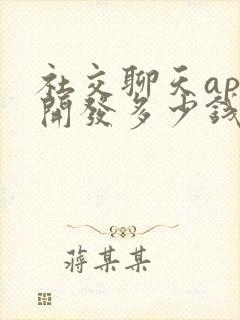 社交聊天ap
開發多少錢
蔣某某